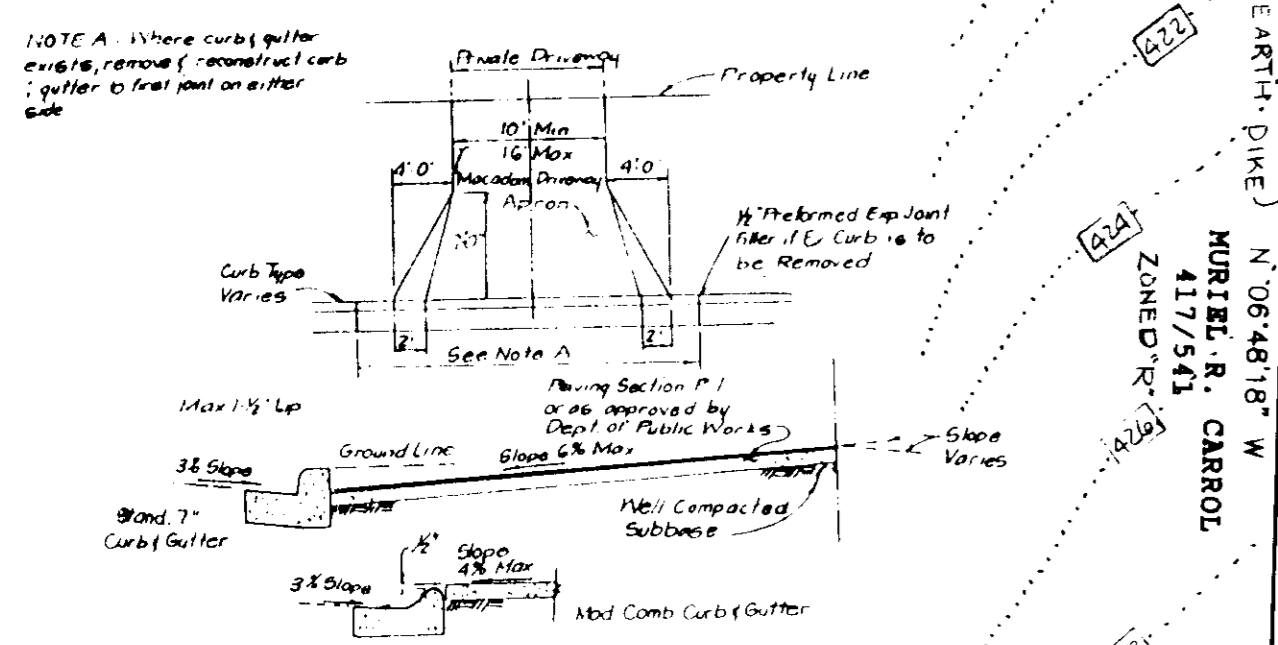 NOTE A. Where curb & gutter
exists, remove & reconstruct curb
& gutter to first joint on either
side
Private Driveway
Property Line
10' Min
16' Max
4'0"
4'0"
Macadam Driveway
Apron
½" Preformed Exp Joint
Filler if Ex Curb is to
be Removed
Curb Type
Varies
2'
2'
See Note A
Max 1-½" Lip
Paving Section P-1
or as approved by
Dept. of Public Works
Ground Line
Slope 6% Max
Slope
Varies
3% Slope
Stand. 7"
Curb & Gutter
Well Compacted
Subbase
½"
Slope
4% Max
3% Slope
Mod Comb Curb & Gutter
422
424
426
EARTH DIKE)
N 06°48'18" W
MURIEL R. CARROL
417/541
ZONED "R"